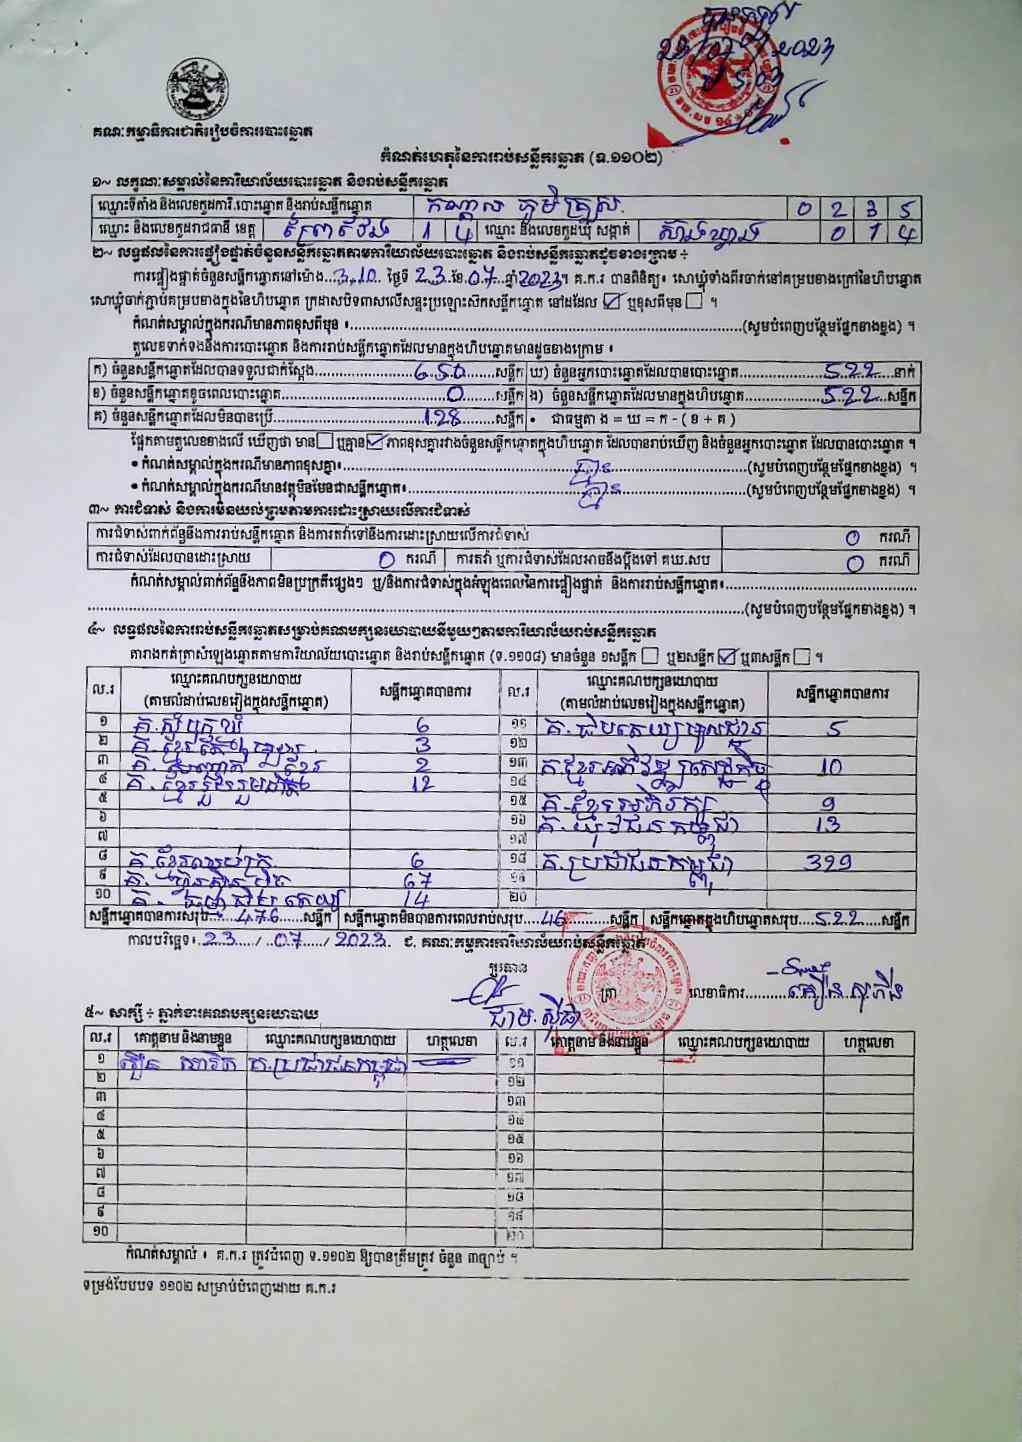 2023
គណៈកម្មាធិការជាតិរៀបចំការបោះឆ្នោត
កំណត់ហេតុនៃការរាប់សន្លឹកឆ្នោត (ទ.១១០២)
១~ លក្ខណៈសម្គាល់នៃការិយាល័យបោះឆ្នោត និងរាប់សន្លឹកឆ្នោត
ឈ្មោះទីតាំង និងលេខកូដការិ.បោះឆ្នោត និងរាប់សន្លឹកឆ្នោត 0 2 3 5
ឈ្មោះ និងលេខកូដរាជធានី ខេត្ត ព្រៃវែង 1 4 ឈ្មោះ និងលេខកូដឃុំ សង្កាត់ 0 1 4
២~ លទ្ធផលនៃការផ្ទៀងផ្ទាត់ចំនួនសន្លឹកឆ្នោតតាមការិយាល័យបោះឆ្នោត និងរាប់សន្លឹកឆ្នោតដូចខាងក្រោម ÷
ការផ្ទៀងផ្ទាត់ចំនួនសន្លឹកឆ្នោតនៅម៉ោង...3.10...ថ្ងៃទី 23 ខែ.07...ឆ្នាំ2023។ គ.ក.រ បានពិនិត្យ៖ សោឃ្លុំទាំងពីរចាក់នៅគម្របខាងក្រៅនៃហិបឆ្នោត
សោឃ្លុំចាក់ភ្ជាប់គម្របខាងក្នុងនៃហិបឆ្នោត ក្រដាសបិទពាសលើសន្ទះប្រឡោះសិកសន្លឹកឆ្នោត នៅដដែល ☑ ឬខុសពីមុន ☐ ។
កំណត់សម្គាល់ក្នុងករណីមានភាពខុសពីមុន ៖...(សូមបំពេញបន្ថែមផ្នែកខាងខ្នង) ។
តួលេខទាក់ទងនឹងការបោះឆ្នោត និងការរាប់សន្លឹកឆ្នោតដែលមានក្នុងហិបឆ្នោតមានដូចខាងក្រោម ៖
ក) ចំនួនសន្លឹកឆ្នោតដែលបានទទួលជាក់ស្តែង...650...សន្លឹក ឃ) ចំនួនអ្នកបោះឆ្នោតដែលបានបោះឆ្នោត...522...នាក់
ខ) ចំនួនសន្លឹកឆ្នោតខូចពេលបោះឆ្នោត...0...សន្លឹក ង) ចំនួនសន្លឹកឆ្នោតដែលមានក្នុងហិបឆ្នោត...522...សន្លឹក
គ) ចំនួនសន្លឹកឆ្នោតដែលមិនបានប្រើ...128...សន្លឹក • ជាធម្មតា ង = ឃ = ក - ( ខ + គ )
ផ្អែកតាមតួលេខខាងលើ ឃើញថា មាន ☐ ឬគ្មាន ☑ ភាពខុសគ្នារវាងចំនួនសន្លឹកឆ្នោតក្នុងហិបឆ្នោត ដែលបានរាប់ឃើញ និងចំនួនអ្នកបោះឆ្នោត ដែលបានបោះឆ្នោត ។
• កំណត់សម្គាល់ក្នុងករណីមានភាពខុសគ្នា៖...គ្មាន...(សូមបំពេញបន្ថែមផ្នែកខាងខ្នង) ។
• កំណត់សម្គាល់ក្នុងករណីមានវត្ថុមិនមែនជាសន្លឹកឆ្នោត៖...គ្មាន...(សូមបំពេញបន្ថែមផ្នែកខាងខ្នង) ។
៣~ ការជំទាស់ និងការមិនយល់ព្រមតាមការដោះស្រាយលើការជំទាស់
ការជំទាស់ពាក់ព័ន្ធនឹងការរាប់សន្លឹកឆ្នោត និងការតវ៉ាទៅនឹងការដោះស្រាយលើការជំទាស់ 0 ករណី
ការជំទាស់ដែលបានដោះស្រាយ 0 ករណី ការតវ៉ា ឬការជំទាស់ដែលអាចនឹងប្តឹងទៅ គឃ.សប 0 ករណី
កំណត់សម្គាល់ពាក់ព័ន្ធនឹងភាពមិនប្រក្រតីផ្សេងៗ ឬ/និងការជំទាស់ក្នុងអំឡុងពេលនៃការផ្ទៀងផ្ទាត់ និងការរាប់សន្លឹកឆ្នោត៖...
...(សូមបំពេញបន្ថែមផ្នែកខាងខ្នង) ។
៤~ លទ្ធផលនៃការរាប់សន្លឹកឆ្នោតសម្រាប់គណបក្សនយោបាយនីមួយៗតាមការិយាល័យរាប់សន្លឹកឆ្នោត
តារាងកត់ត្រាសំឡេងឆ្នោតតាមការិយាល័យបោះឆ្នោត និងរាប់សន្លឹកឆ្នោត (ទ.១១០៨) មានចំនួន ១សន្លឹក ☐ ឬ២សន្លឹក ☑ ឬ៣សន្លឹក ☐ ។
ល.រ ឈ្មោះគណបក្សនយោបាយ (តាមលំដាប់លេខរៀងក្នុងសន្លឹកឆ្នោត) សន្លឹកឆ្នោតបានការ ល.រ ឈ្មោះគណបក្សនយោបាយ (តាមលំដាប់លេខរៀងក្នុងសន្លឹកឆ្នោត) សន្លឹកឆ្នោតបានការ
១ 6 ១១ 5
២ 3 ១២
៣ 2 ១៣ គ.ខ្មែរអភិវឌ្ឍន៍សេដ្ឋកិច្ច 10
៤ គ.ខ្មែររួបរួមជាតិ 12 ១៤
៥ ១៥ គ.ខ្មែរអភិរក្ស 9
៦ ១៦ គ.យុវជនកម្ពុជា 13
៧ ១៧
៨ 6 ១៨ គ.ប្រជាជនកម្ពុជា 329
៩ គ.ហ៊្វុនស៊ិនប៉ិច 67 ១៩
១០ 14 ២០
សន្លឹកឆ្នោតបានការសរុប...476...សន្លឹក សន្លឹកឆ្នោតមិនបានការពេលរាប់សរុប...46...សន្លឹក សន្លឹកឆ្នោតក្នុងហិបឆ្នោតសរុប...522...សន្លឹក
កាលបរិច្ឆេទ៖ 23 / 07 / 2023. ជ. គណៈកម្មការការិយាល័យរាប់សន្លឹកឆ្នោត
ប្រធាន ត្រា លេខាធិការ
៥~ សាក្សី ÷ ភ្នាក់ងារគណបក្សនយោបាយ
ល.រ គោត្តនាម និងនាមខ្លួន ឈ្មោះគណបក្សនយោបាយ ហត្ថលេខា ល.រ គោត្តនាម និងនាមខ្លួន ឈ្មោះគណបក្សនយោបាយ ហត្ថលេខា
១ គ.ប្រជាជនកម្ពុជា ១១
២ ១២
៣ ១៣
៤ ១៤
៥ ១៥
៦ ១៦
៧ ១៧
៨ ១៨
៩ ១៩
១០ ២០
កំណត់សម្គាល់ ៖ គ.ក.រ ត្រូវបំពេញ ទ.១១០២ ឱ្យបានត្រឹមត្រូវ ចំនួន ៣ច្បាប់ ។
ទម្រង់បែបបទ ១១០២ សម្រាប់បំពេញដោយ គ.ក.រ